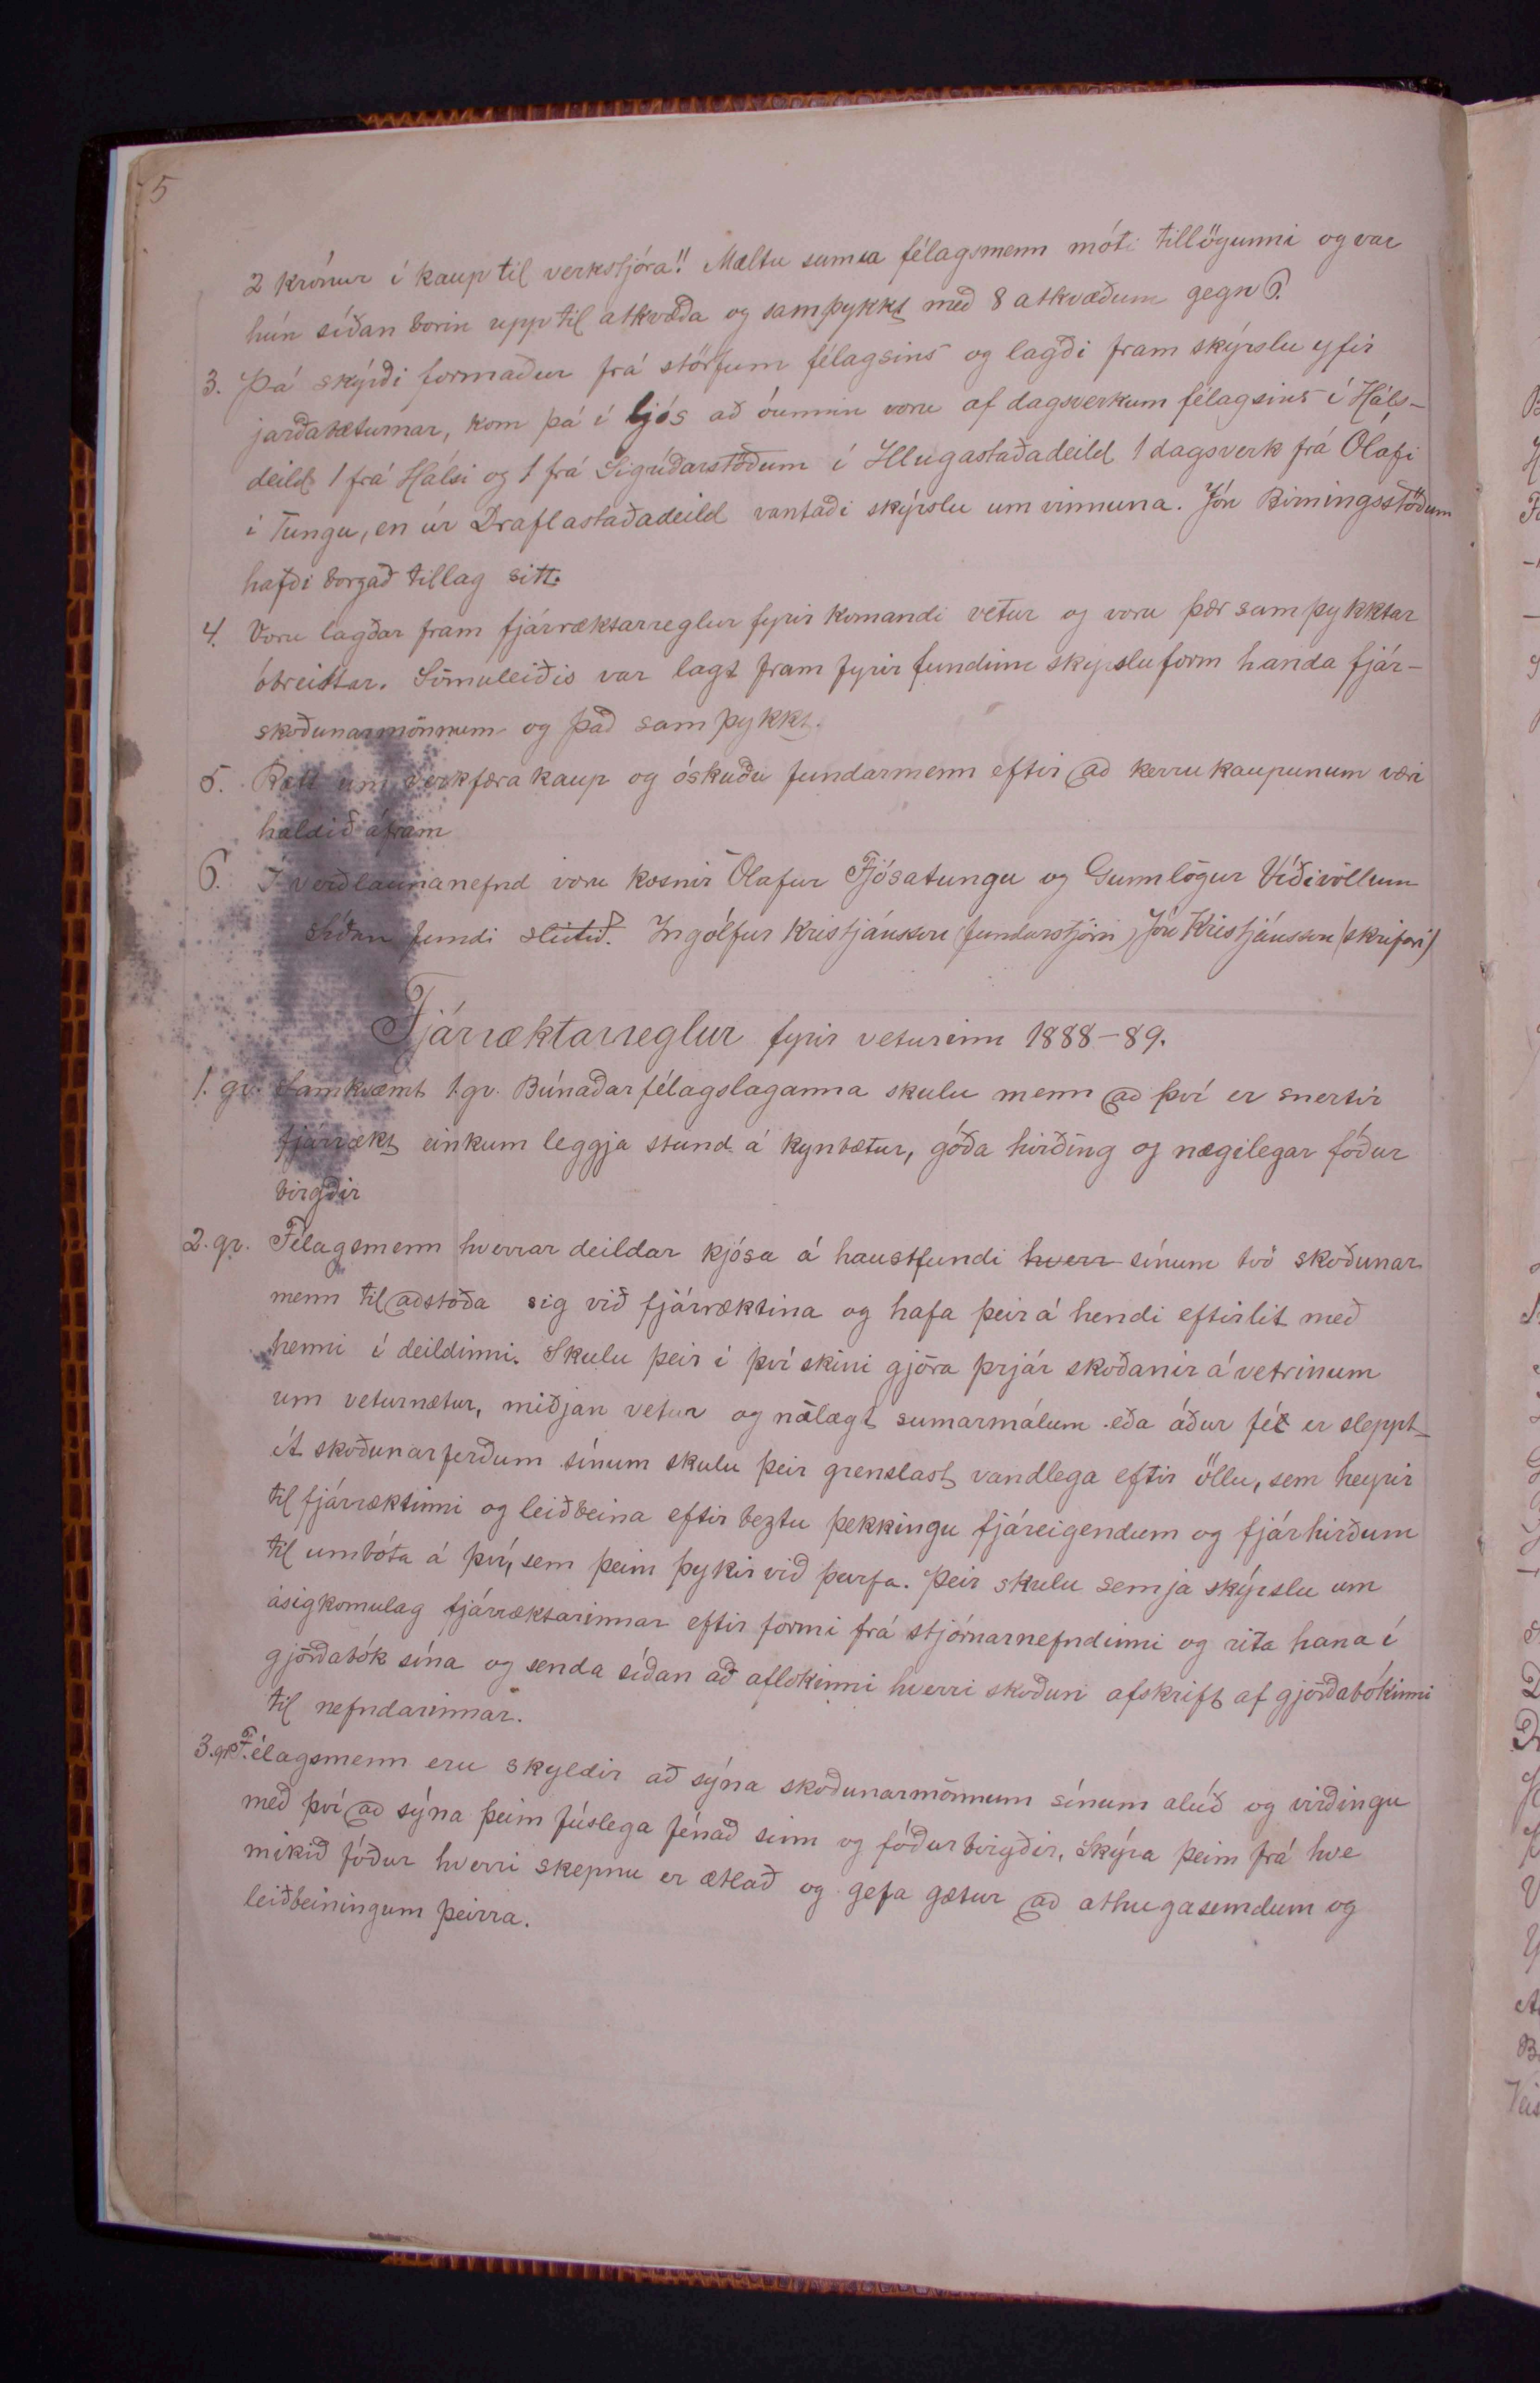 5
2 krónur í kaup til verkstjóra!! Mæltu sumia félagsmenn móti tillögunni og var
hún síðan borin upp til atkvæða og samþykkt með 8 atkvæðum gegn 6.
3. Þá skýrði formaður frá störfum félagsins og lagði fram skýrslu yfir
jarðabæturnar, kom þá í ljós að óunnin voru af dagsverkum félagsins í Háls-
deild 1 frá Hálsi og 1 frá Sigríðarstöðum í Illugastaðadeild 1 dagsverk frá Ólafi
í Tungu, en úr Draflastaðadeild vantaði skýrslu um vinnuna. Jón Birningsstöðum
hafði borgað tillag sitt.
4. Voru lagðar fram fjárræktarreglur fyrir komandi vetur og voru þær samþykktar
óbreittar. Sömuleiðis var lagt fram fyrir fundinn skýrsluform handa fjár-
skoðunarmönnum og það samþykkt.
5. Rætt um verkfærakaup og óskuðu fundarmenn eftir að kerrukaupunum væri
haldið áfram
6. Í verðlaunanefnd voru kosnir Ólafur Fjósatungu og Gunnlögur Víðivöllum
síðan fundi slitið. Ingólfur Kristjánsson (fundarstjóri), Jón Kristjánsson (skrifari)
Fjárræktarreglur fyrir veturinn 1888-89.
1. gr. Samkvæmt 1.gr. Búnaðarfélagslaganna skulu menn að því er snertir
fjárrækt einkum leggja stund á kynbætur, góða hirðing og nægilegar fóður
birgðir
2. gr. Félagsmenn hverrar deildar kjósa á haustfundi hverr sínum tvö skoðunar
menn til aðstoða sig við fjárræktina og hafa þeir á hendi eftirlit með
henni í deildinni. Skulu þeir í því skini gjöra þrjár skoðanir á vetrinum
um veturnætur, miðjan vetur og nálægt sumarmálum eða áður fé er sleppt_
Á skoðunarferðum sínum skulu þeir grenslast vandlega eftir öllu, sem heyrir
til fjárræktinni og leiðbeina eftir beztu þekkingu fjáreigendum og fjárhirðum
til umbóta á því, sem þeim þykir við þurfa. Þeir skulu semja skýrslu um
ásigkomulag fjárræktarinnar eftir formi frá stjórnarnefndinni og rita hana í
gjörðabók sína og senda síðan að aflokinni hverri skoðun afskrift af gjörðabókinni
til nefndarinnar.
3.gr. Félagsmenn eru skyldir að sýna skoðunarmönnum sínum alúð og virðingu
með því að sýna þeim fúslega fénað sinn og fóðurbirgðir, Skýra þeim frá hve
mikið fóður hverri skepnu er ætlað og gefa gætur að athugasemdum og
leiðbeiningum þeirra.